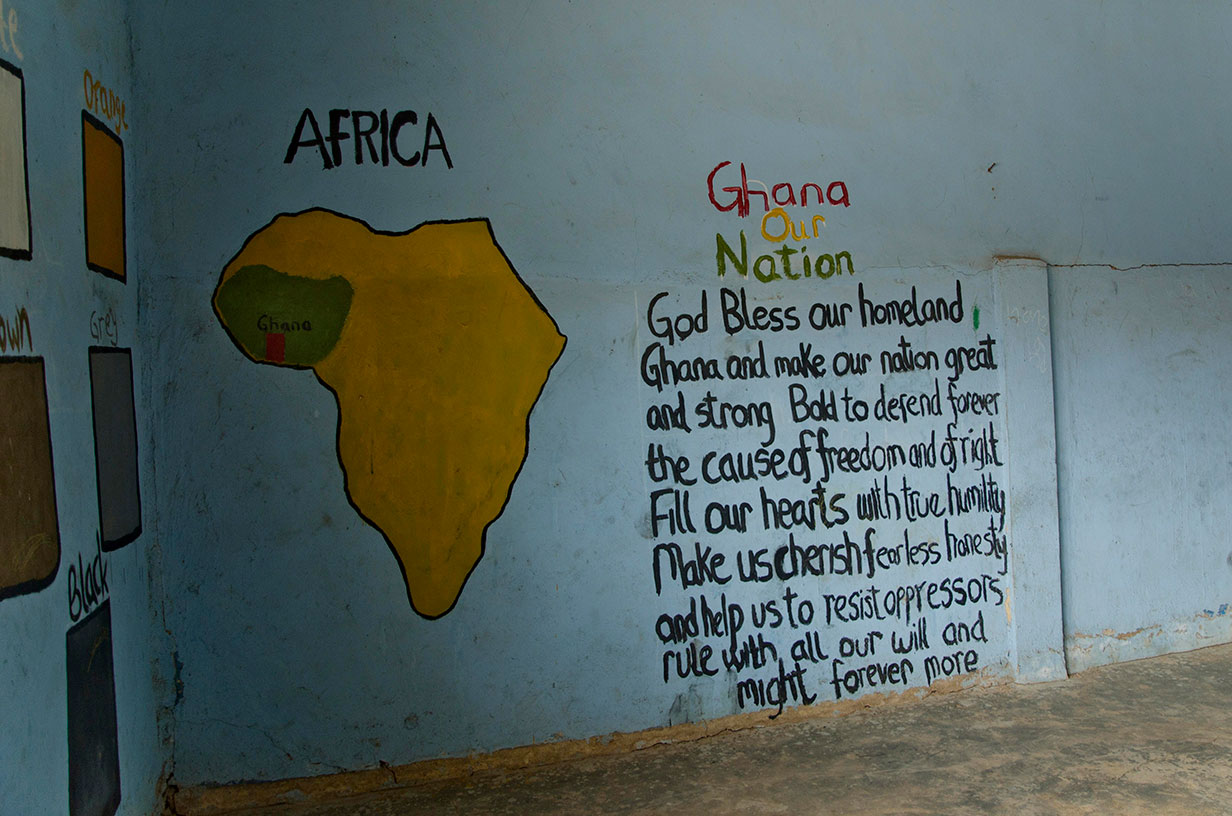 Orange
Grey
Black
AFRICA
Ghana
Ghana
Our
Nation
God Bless our homeland
Ghana and make our nation great
and strong Bold to defend forever
the cause of freedom and of right
Fill our hearts with true humility
Make us cherish fearless honesty
and help us to resist oppressors
rule with all our will and
might forever more